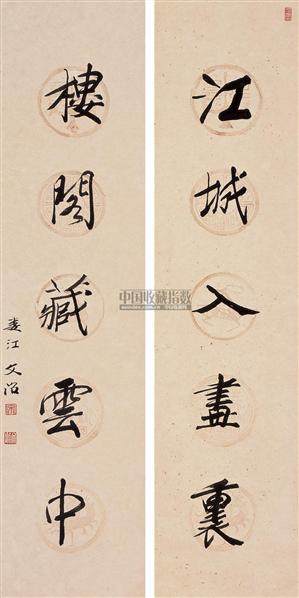 江城入畫裏
樓閣藏雲中
婁江文治
中国收藏指数